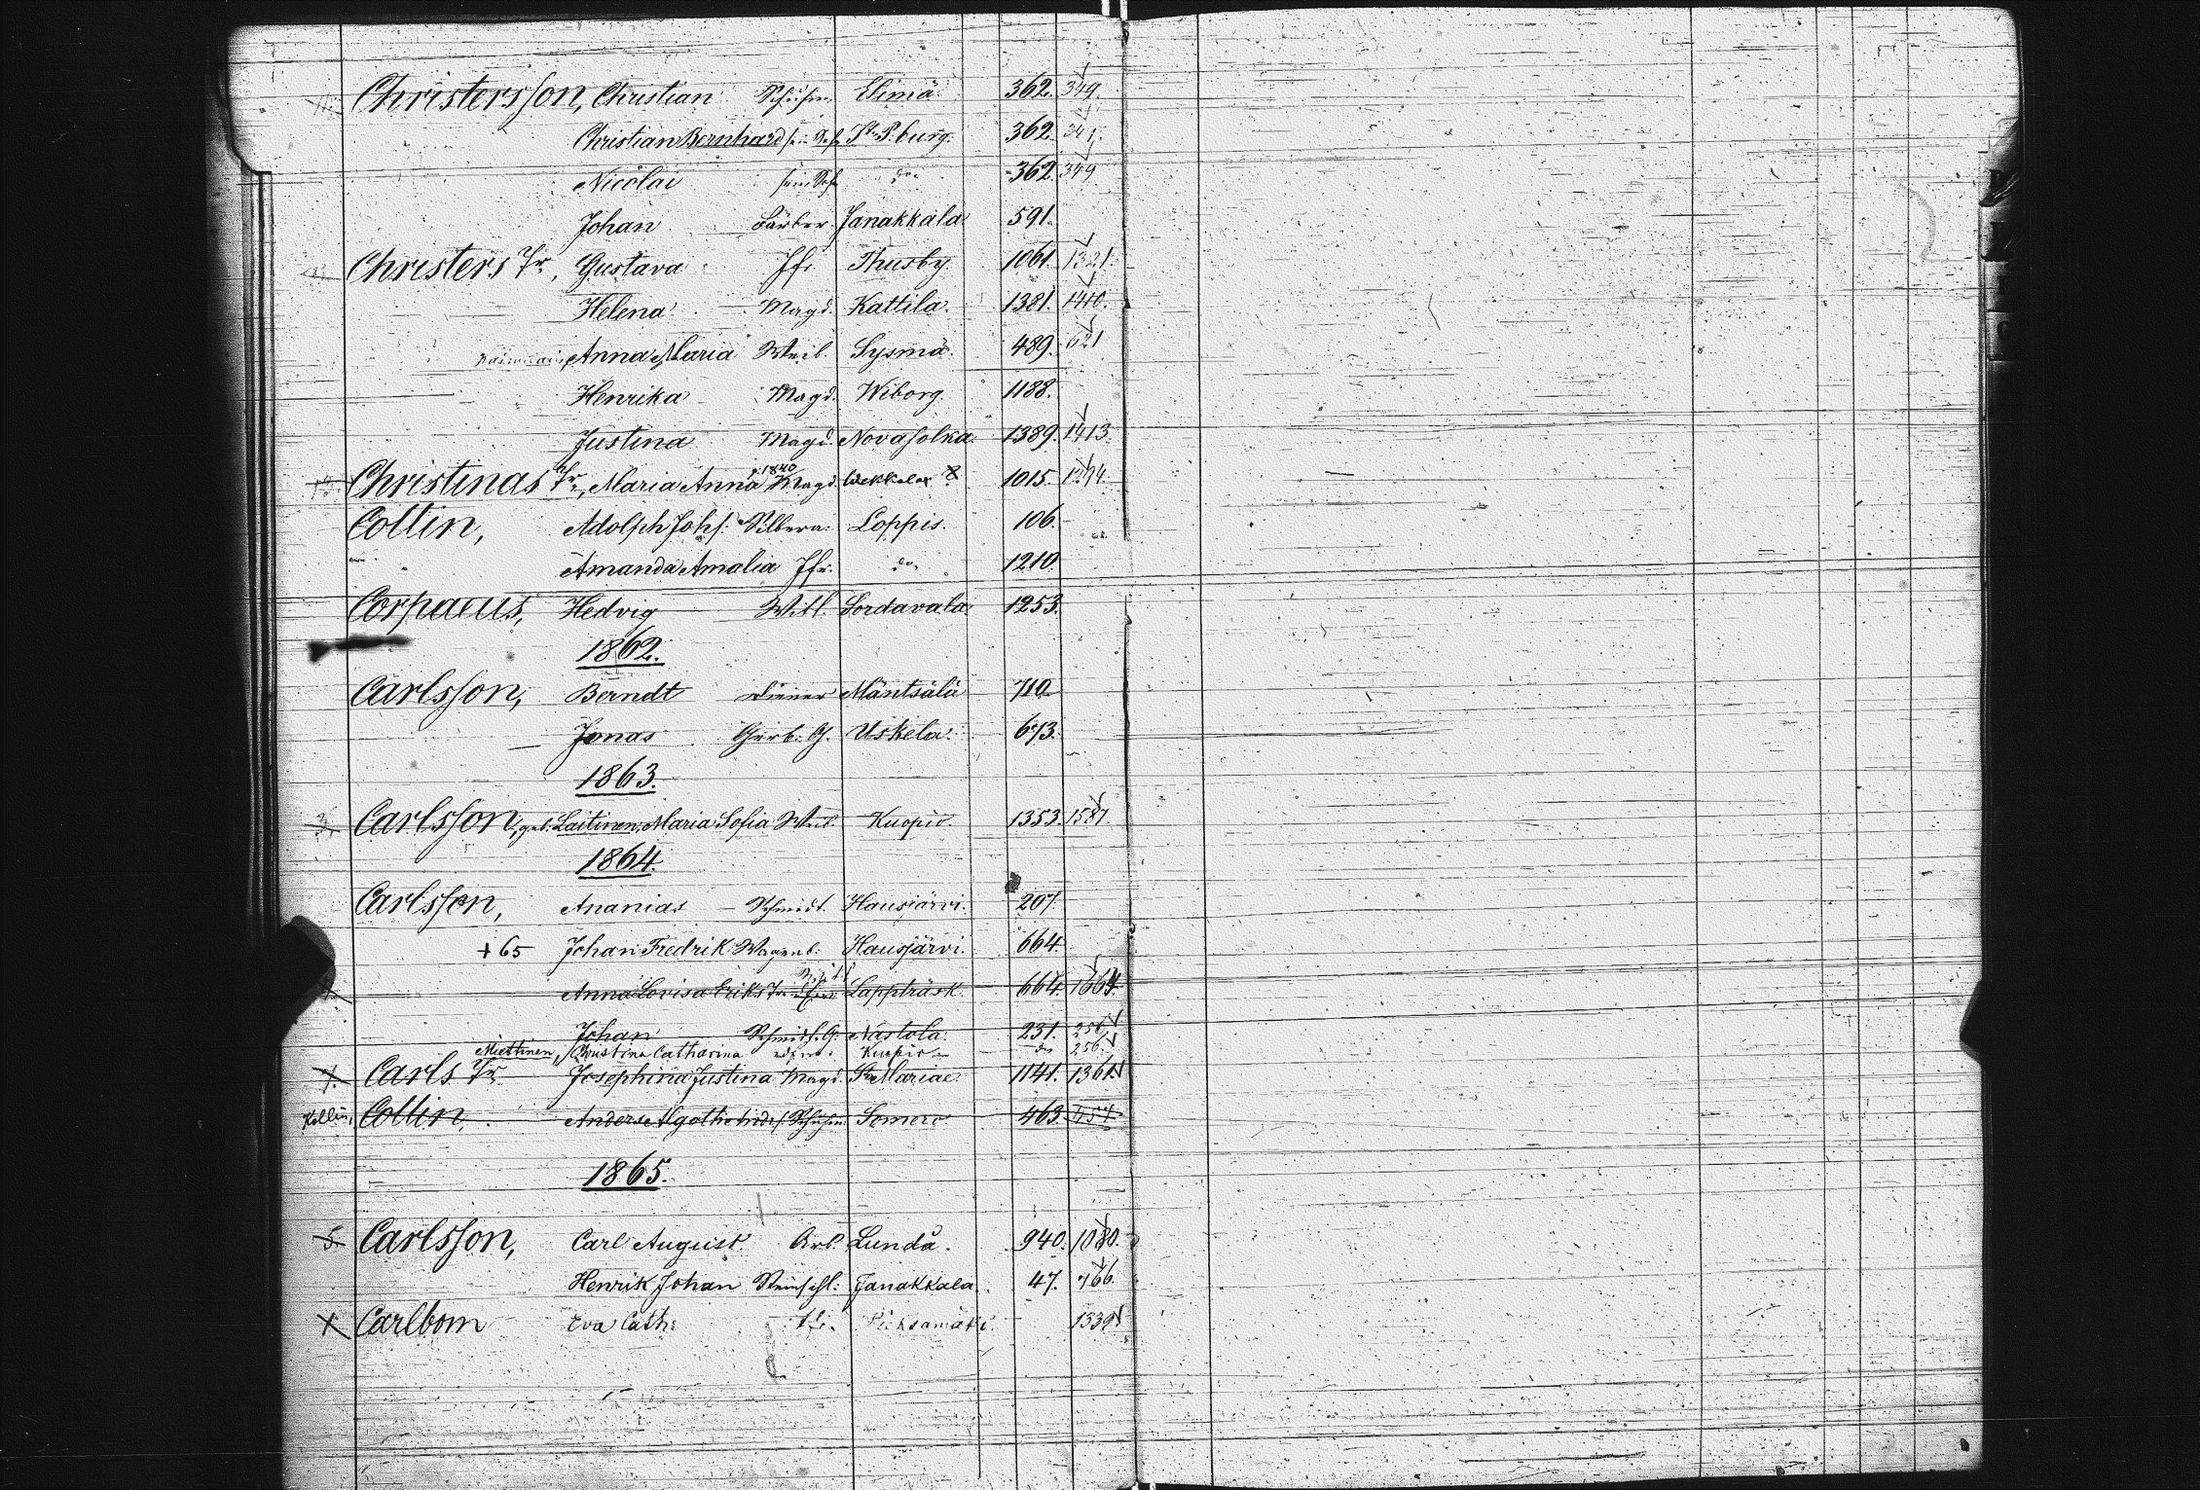 11. Christersson, Christian Schuhm. Elimä. 362. 349.
Christian Bernhard sein Sohn St. P.burg. 362. 341.
Nicolai sein Sohn do. 362. 349
Johan Färber. Janakkala. 591.
Christers Tr., Gustava Jfr. Thusby. 1061. 1321.
Helena Magd. Kattila. 1381. 1410.
Anna Maria Weib. Sysmä. 489. 621
Henrika Magd. Wiborg. 1188.
Justina Magd. Nova solka. 1389. 1413.
Christinas Tr., Maria Anna g. 1840 Magd. Wekkelax 1015. 1294.
Collin, Adolph Johs. Silbera: Loppis. 106.
Amanda Amalia Jfr. do. 1210.
Corpaeus, Hedvig Witt. Sordavala. 1253.
1862.
Carlsson, Berndt Diener Mäntsälä 710.
Jonas Gerb. G. Uskela. 673.
1863.
3. Carlsson, geb: Laitinen, Maria Sofia Weib. Kuopio. 1353. 1587.
1864.
Carlsson, Ananias Schmidt. Hausjärvi. 207.
+ 65 Johan Fredrik Wagenb. Hausjärvi. 664.
Anna Lovisa Eriks Tr. Lappträsk. 664. 1664.
Johan Schmidt. G. Nastola. 231. 256.
Miettinen, Christina Catharina Kuopio do 256.
Carls Tr. Josephina Justina Magd. St Mariae. 1141. 1361.
Kollin, Collin, Anders Algoth Schuhm. Somero 463. 454
1865.
5. Carlsson, Carl August. Arb. Lundå. 940. 1080.
Henrik Johan Steinschl: Janakkala. 47. 766.
Carlbom Eva Cath: Pieksämäki. 1339